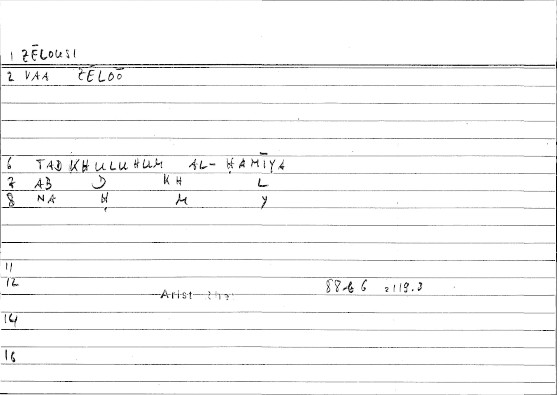 1 ZĒLOUSI
2 VAA ZĒLOŌ
6 TADKHULUHUM AL-ḤAMĪYA
7 AB D KH L
8 NA Ḥ M Y
11
12
Arist 88b6 119.3
14
16